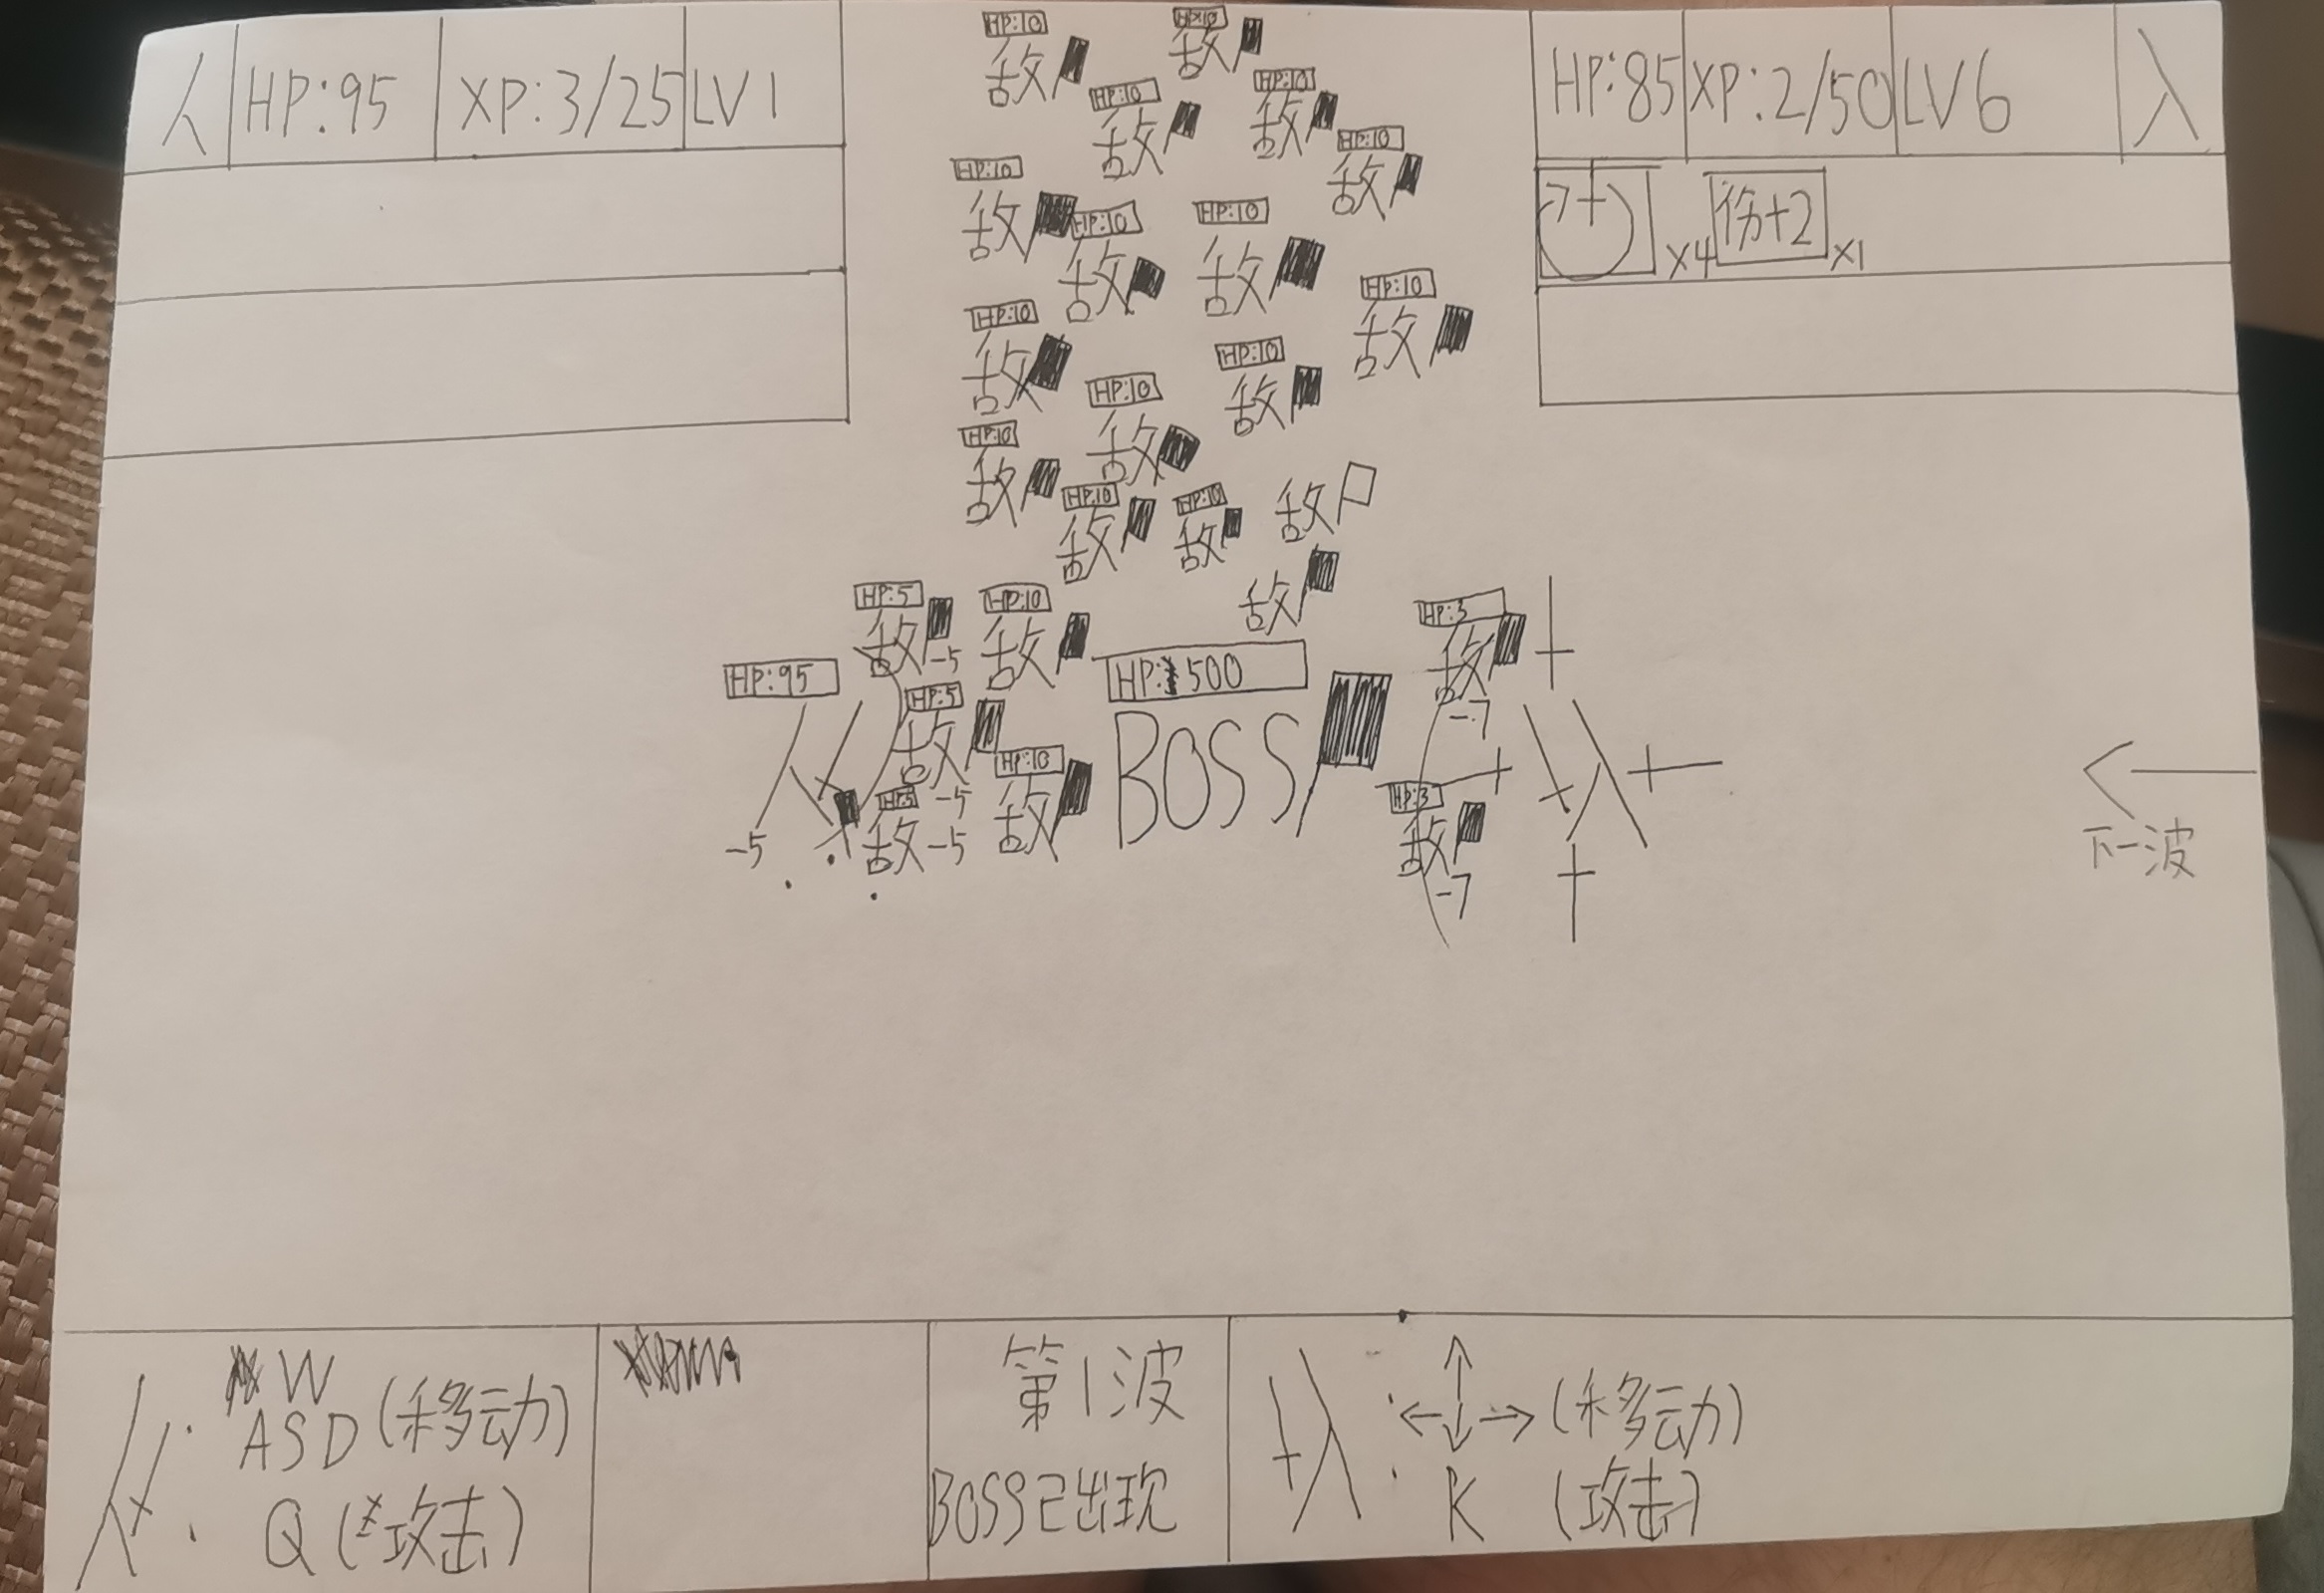 人 HP:95 XP:3/25 LV1
HP:85 XP:2/50 LV6 入
HP:10
敌
HP:10
敌
HP:10
敌
HP:10
敌
HP:10
敌
HP:10
敌
HP:10
敌
HP:10
敌
HP:10
敌
HP:10
敌
HP:10
敌
HP:10
敌
HP:10
敌
HP:10
敌
HP:10
敌
敌
敌
×4 伤+2 ×1
HP:5
敌 -5
HP:10
敌
HP:95
人
-5
HP:5
敌
-5
HP:5
敌 -5
HP:10
敌
HP:500
BOSS
HP:3
敌
-7
HP:3
敌
-7
入
下一波
人: W
ASD (移动)
Q (攻击)
第1波
BOSS已出现
入: ↑
←↓→ (移动)
K (攻击)